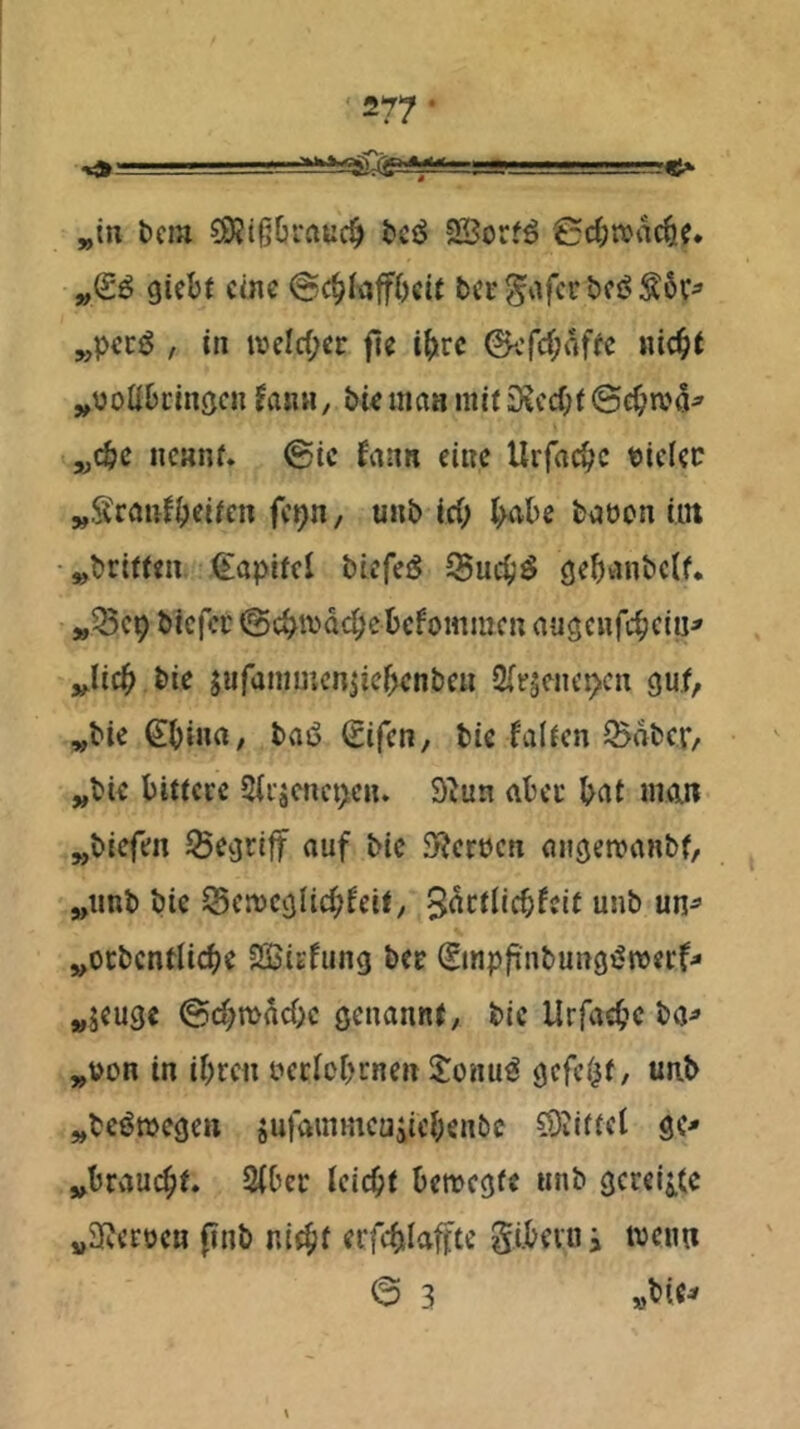 277
„in dem Mißbrauch des Worts Schwäche.
„Es giebt eine Schlaffheit der Faser des Kör-
„pers, in welcher sie ihre Geschäfte nicht
„vollbringen kann, die man mit Recht Schwä-
„che nennt. Sie kann eine Ursache vieler
„Krankheiten seyn, und ich habe davon im
„dritten Capitel dieses Buchs gehandelt.
„Bey dieser Schwäche bekommen augenschein-
„lich die zusammenziehenden Arzeneyen gut,
„die China, das Eisen, die kalten Bäder,
„die bittere Arzeneyen. Nun aber hat man
„diesen Begriff auf die Nerven angewandt,
„und die Beweglichkeit, Zärtlichkeit und un-
„ordentliche Wirkung der Empfindungswerk-
„zeuge Schwäche genannt, die Ursache da-
„von in ihren verlohrnen Tonus gesetzt, und
„deswegen zusammenziehende Mittel ge-
„braucht. Aber leicht bewegte und gereizte
„Nerven sind nicht erschlaffte Fibern; wenn
S 3 „die-